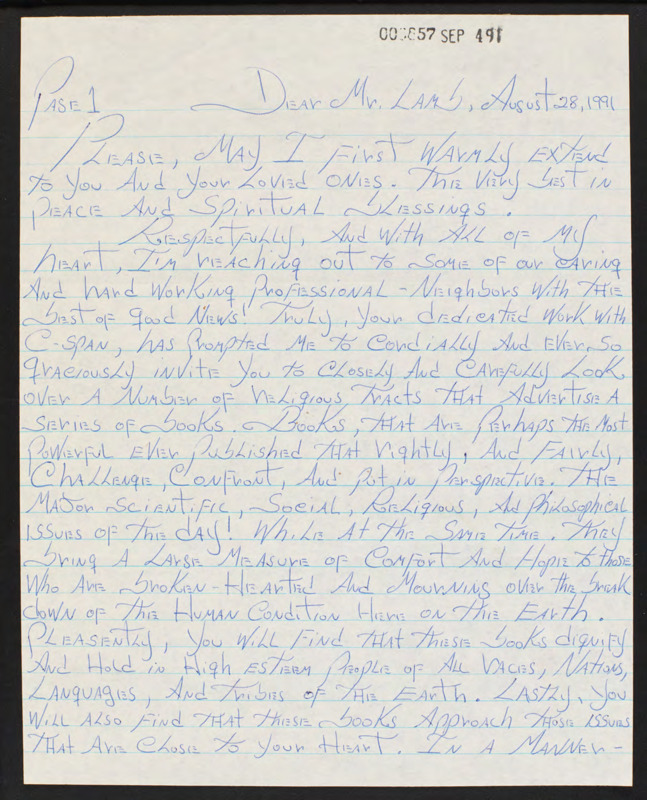 003657 SEP 491
Page 1 Dear Mr. Lamb, August 28, 1991
Please, May I first warmly extend
to you and your loved ones. The very best in
peace and spiritual blessings.
Respectfully, and with all of my
heart, I'm reaching out to some of our caring
and hard working professional-neighbors with the
best of good news! Truly, your dedicated work with
C-span, has prompted me to cordially and ever so
graciously invite you to closely and carefully look
over a number of religious tracts that advertise a
series of books. Books, that are perhaps the most
powerful ever published that rightly, and fairly,
challenge, confront, and put in perspective. The
major scientific, social, religious, and philosophical
issues of the day! While at the same time. They
bring a large measure of comfort and hope to those
who are broken-hearted and mourning over the break
down of the human condition here on the earth.
Pleasently, you will find that these books dignify
and hold in high esteem people of all races, nations,
languages, and tribes of the earth. Lastly, you
will also find that these books approach those issues
that are close to your heart. In a manner-